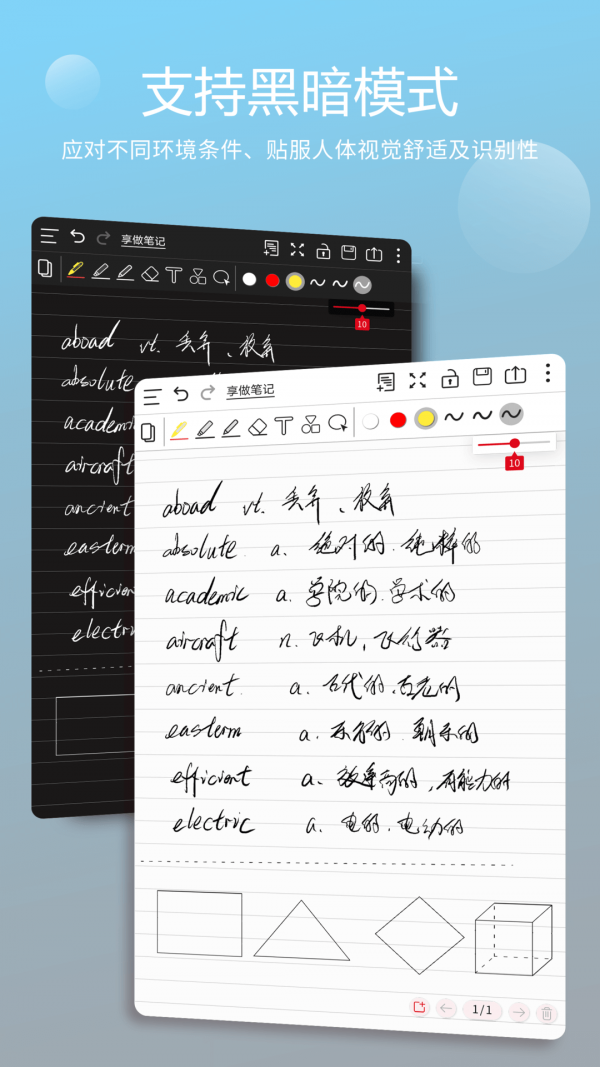 支持黑暗模式
应对不同环境条件、贴服人体视觉舒适及识别性
享做笔记
10
aboad vt. 丢弃、放弃
absolute
academic
aircraft
ancient
easterm
efficient
electric
享做笔记
10
aboad vt. 丢弃、放弃
absolute a. 绝对的.纯粹的
academic a. 学院的.学术的
aircraft n. 飞机,飞行器
ancient. a. 古代的.古老的
easterm a. 东方的.朝东的
efficient a. 效率高的,有能力的
electric a. 电的.电动的
1/1